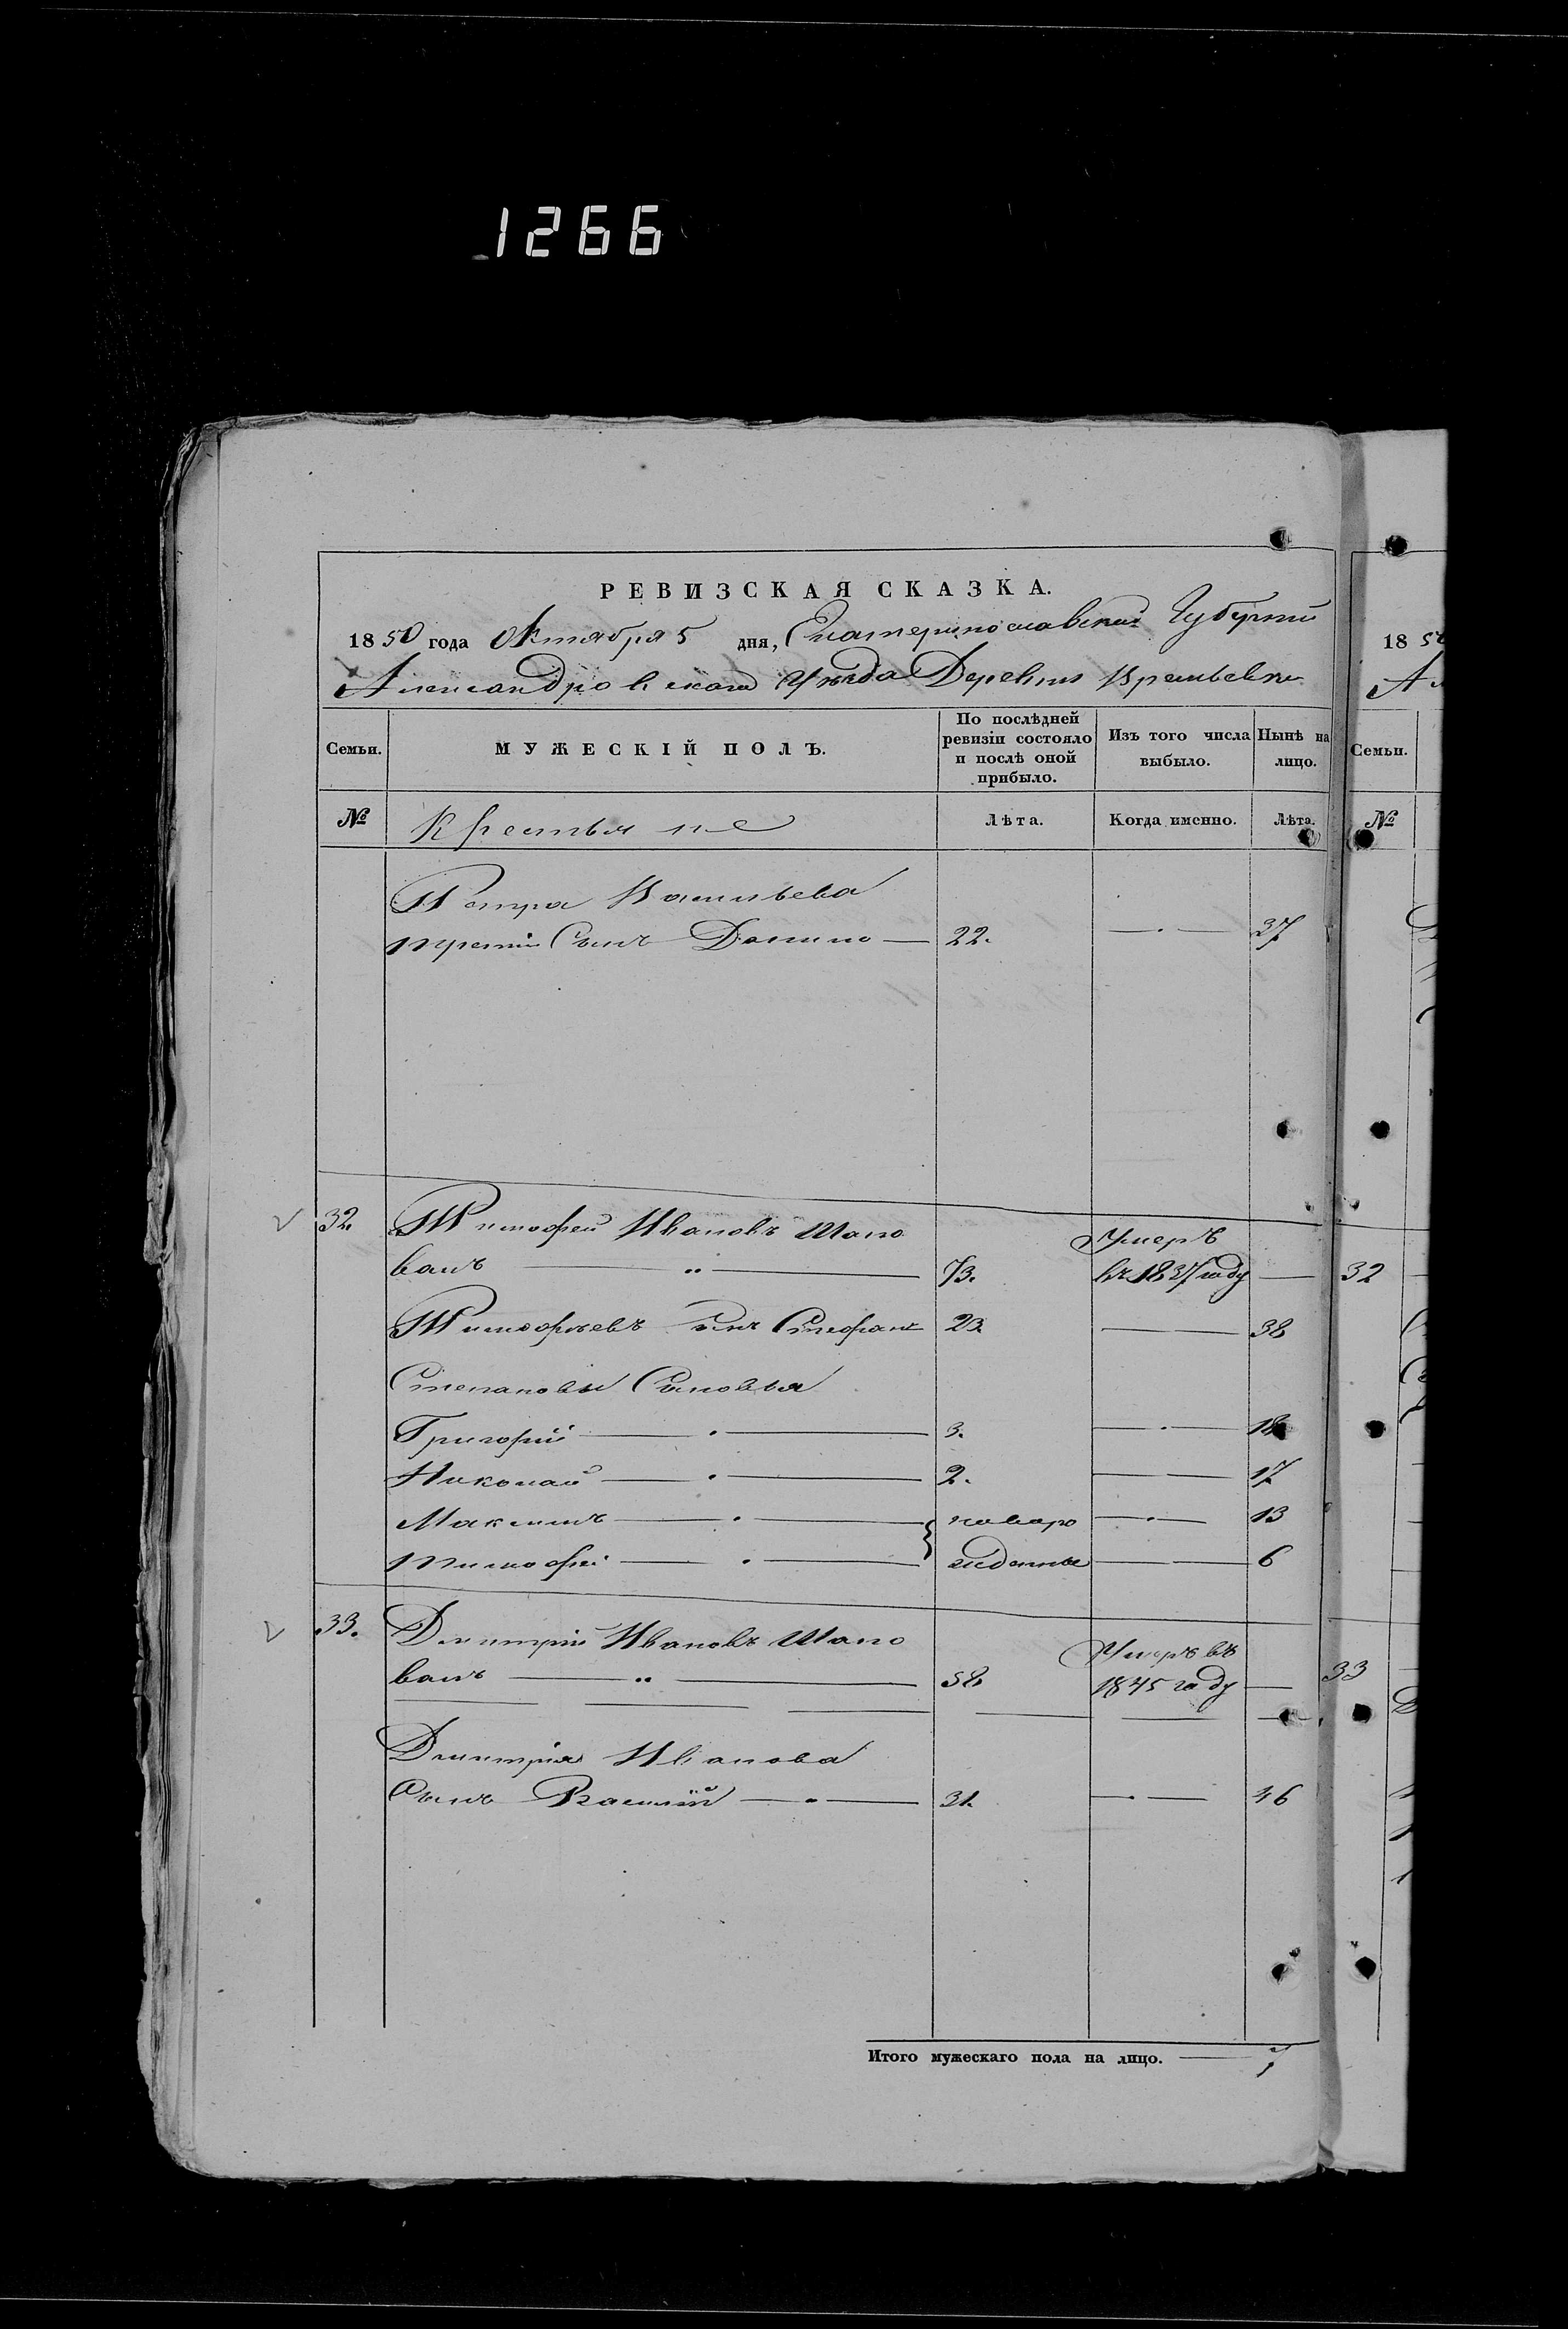 1266
РЕВИЗСКАЯ СКАЗКА.
1850 года Октября 5 дня, Екатеринославской Губернии
Александровскаго Уѣзда Деревни Времьевки
Семьи. МУЖЕСКІЙ ПОЛЪ. По послѣдней ревизіи состояло и послѣ оной прибыло. Изъ того числа выбыло. Нынѣ на лицо.
№ Крестьяне Лѣта. Когда именно. Лѣта.
Петра Васильева
третій Сынъ Данило 22. 37
32. Тимофей Ивановъ Шапо Умеръ
валъ 73. въ 1837 году
Тимофѣевъ Сынъ Стефанъ 23. 38
Степановы Сыновья
Григорій 3. 18
Николай 2. 17
Максимъ новоро 13
Тимофей жденные 6
33. Дмитрій Ивановъ Шапо Умеръ въ
валъ 58 1845 году
Дмитрія Иванова
Сынъ Василій 31. 46
Итого мужескаго пола на лицо. 7
1850
А
Семьи.
№
32
33